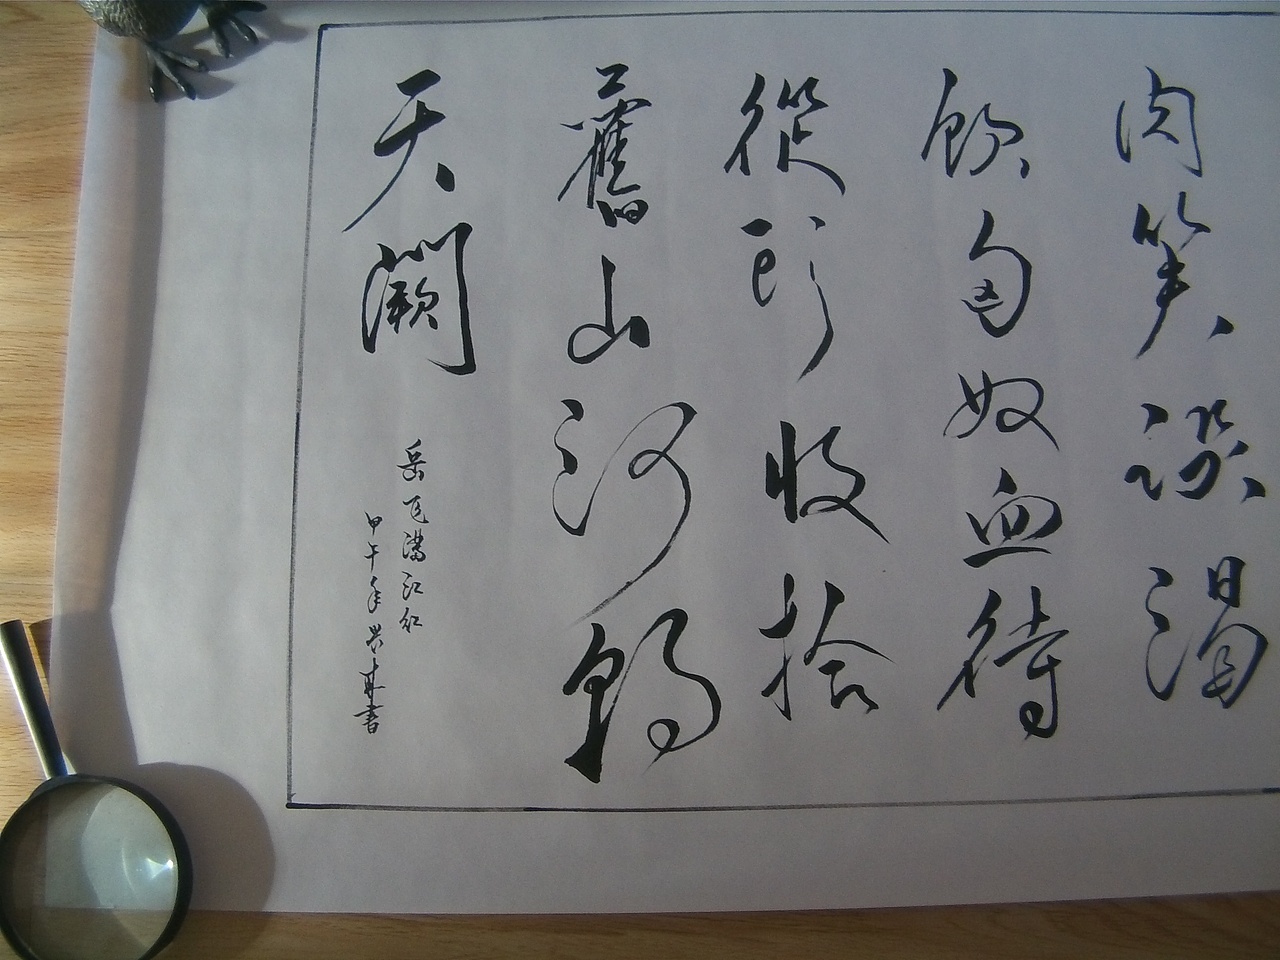 肉笑談渴
飲匈奴血待
從頭收拾
舊山河朝
天闕
岳飞满江红
甲午年兴林書